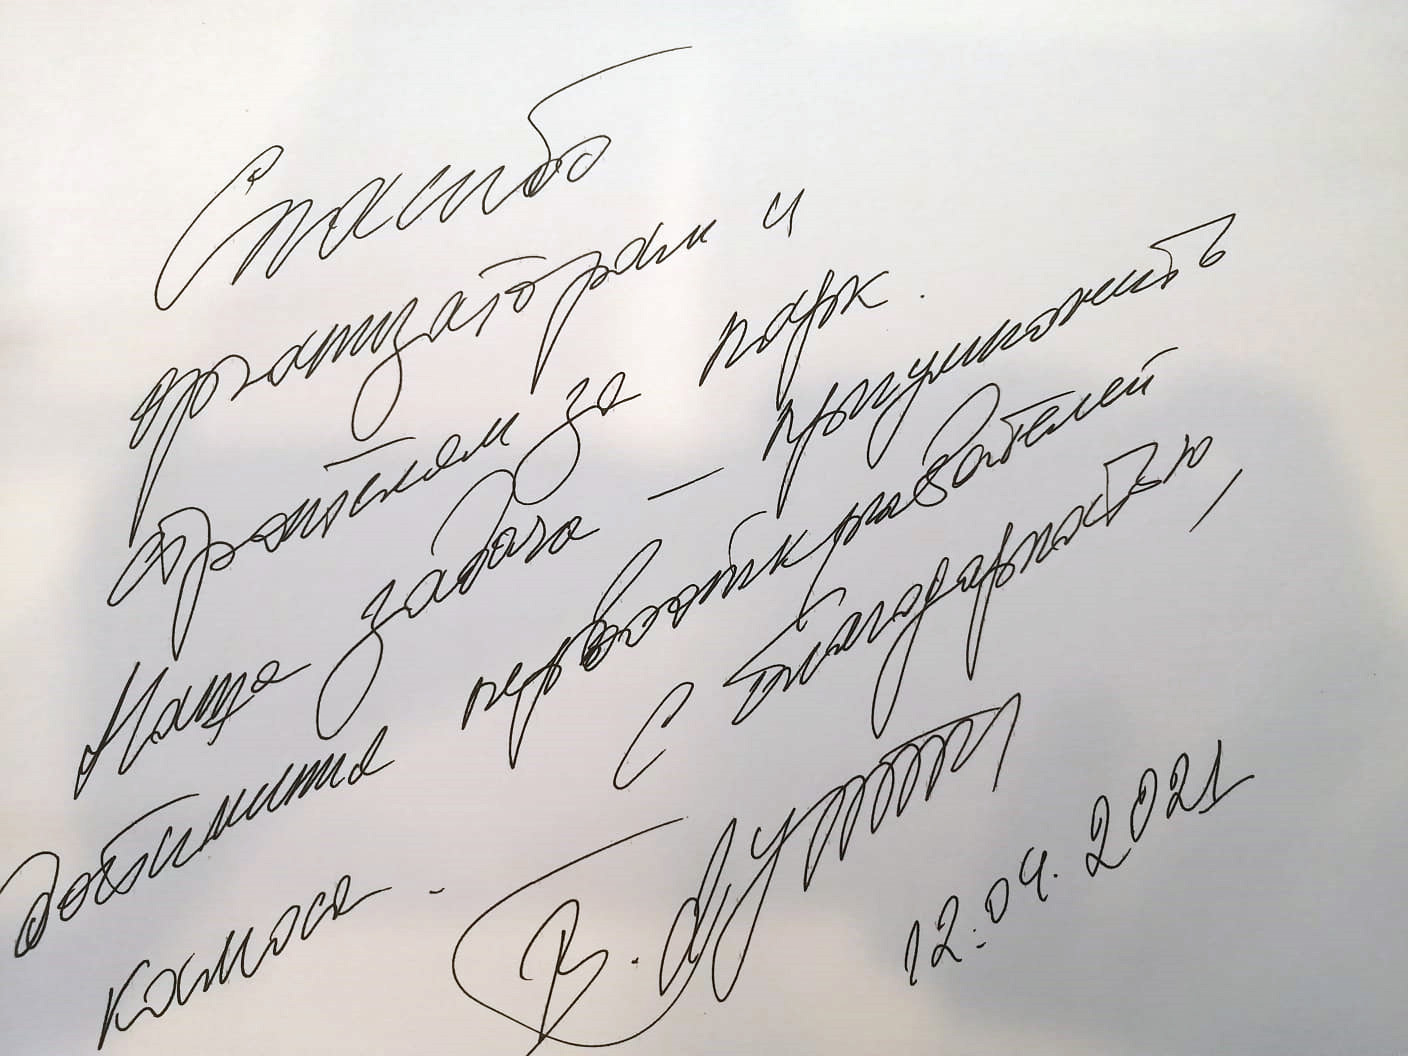 Спасибо
организаторам и
строителям за парк.
Наша задача — приумножить
достижения первооткрывателей
космоса.
С благодарностью,
В. Путин
12.04.2021